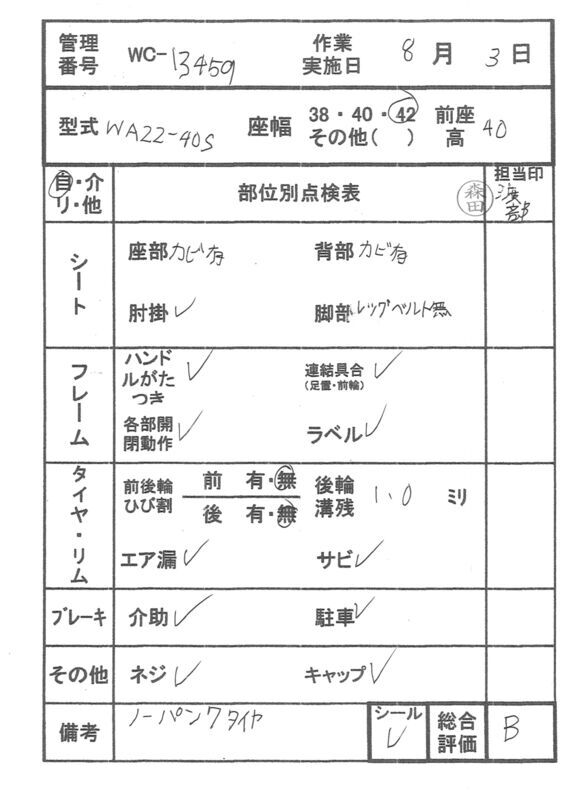 管理番号 WC-13459 作業実施日 8月3日
型式 WA22-40S 座幅 38・40・42 その他( ) 前座高 40
自・介・リ・他 部位別点検表 担当印
森田 渡部
シート
座部 カビ有 背部 カビ有
肘掛 ✓ 脚部 レッグベルト無
フレーム
ハンドルがたつき ✓ 連結具合(足置・前輪) ✓
各部開閉動作 ✓ ラベル ✓
タイヤ・リム
前後輪ひび割 前 有・無 後輪溝残 1.0 ミリ
後 有・無
エア漏 ✓ サビ ✓
ブレーキ 介助 ✓ 駐車 ✓
その他 ネジ ✓ キャップ ✓
備考 ノーパンクタイヤ シール ✓ 総合評価 B